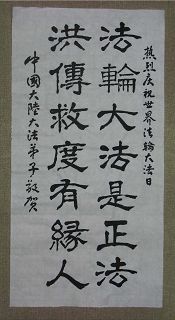 热烈庆祝世界法轮大法日
法輪大法是正法
洪傳救度有緣人
中國大陸大法弟子敬贺